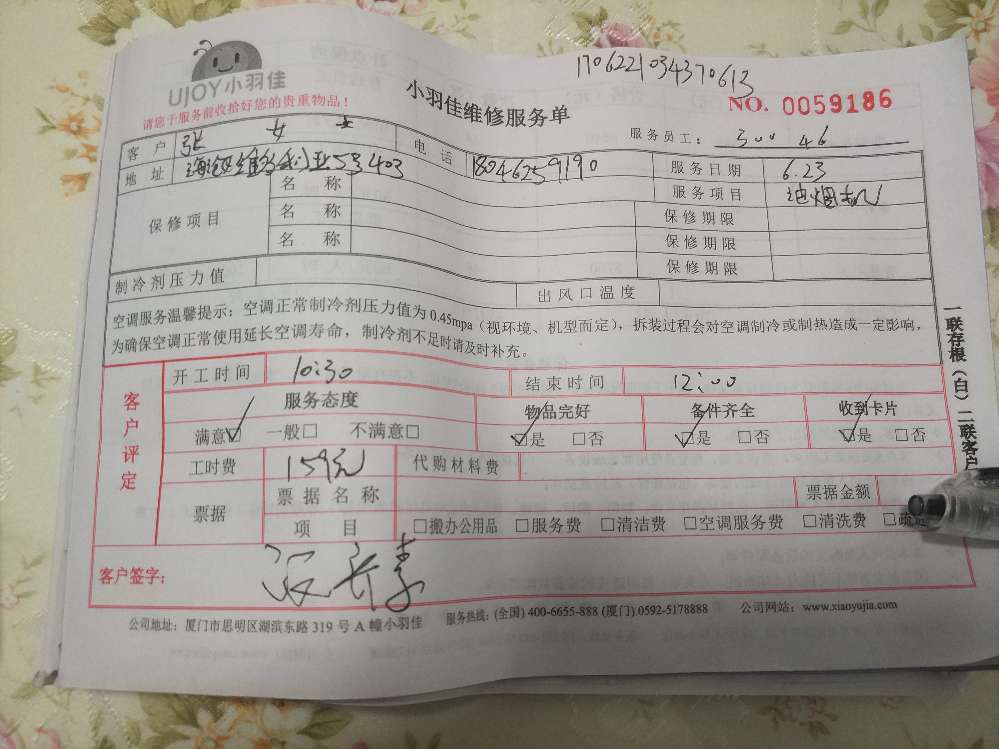 UJOY小羽佳
请您于服务前收拾好您的贵重物品！
1706221034370613
小羽佳维修服务单
NO. 0059186
服务员工：300 46
客户 张 女士 电话 18046259190 服务日期 6.23
地址 海沧 53 403 服务项目 油烟机
保修项目
名称 保修期限
名称 保修期限
名称 保修期限
制冷剂压力值 出风口温度
空调服务温馨提示：空调正常制冷剂压力值为 0.45mpa（视环境、机型而定），拆装过程会对空调制冷或制热造成一定影响，
为确保空调正常使用延长空调寿命，制冷剂不足时请及时补充。
客户评定
开工时间 10:30 结束时间 12:00
服务态度 物品完好 备件齐全 收到卡片
满意☑ 一般□ 不满意□ ☑是 □否 ☑是 □否 ☑是 □否
工时费 159元 代购材料费
票据 票据名称 票据金额
项目 □搬办公用品 □服务费 □清洁费 □空调服务费 □清洗费 □疏
客户签字：
一联存根（白）二联客户
公司地址：厦门市思明区湖滨东路 319 号 A 幢小羽佳 服务热线：(全国) 400-6655-888 (厦门) 0592-5178888 公司网站：www.xiaoyujia.com